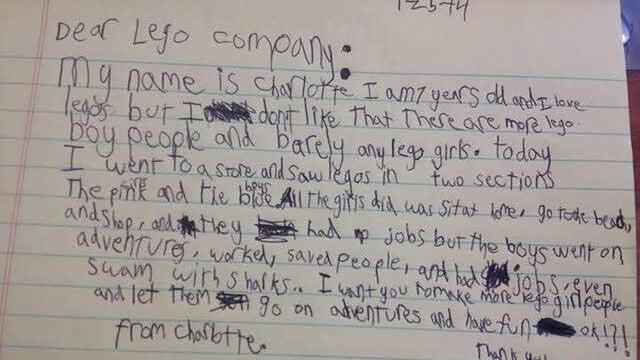 Dear Lego company:
My name is Charlotte I am 7 years old and I love
legos but I don't like that there are more lego
boy people and barely any lego girls. today
I went to a store and saw legos in two sections
The pink girls and the blue boys. All the girls did was sit at home, go to the beach,
and shop, and they had no jobs but the boys went on
adventures, worked, saved people, and had jobs, even
swam with sharks.. I want you to make more lego girl people
and let them go on adventures and have fun ok!?!
from Charlotte.
Thank